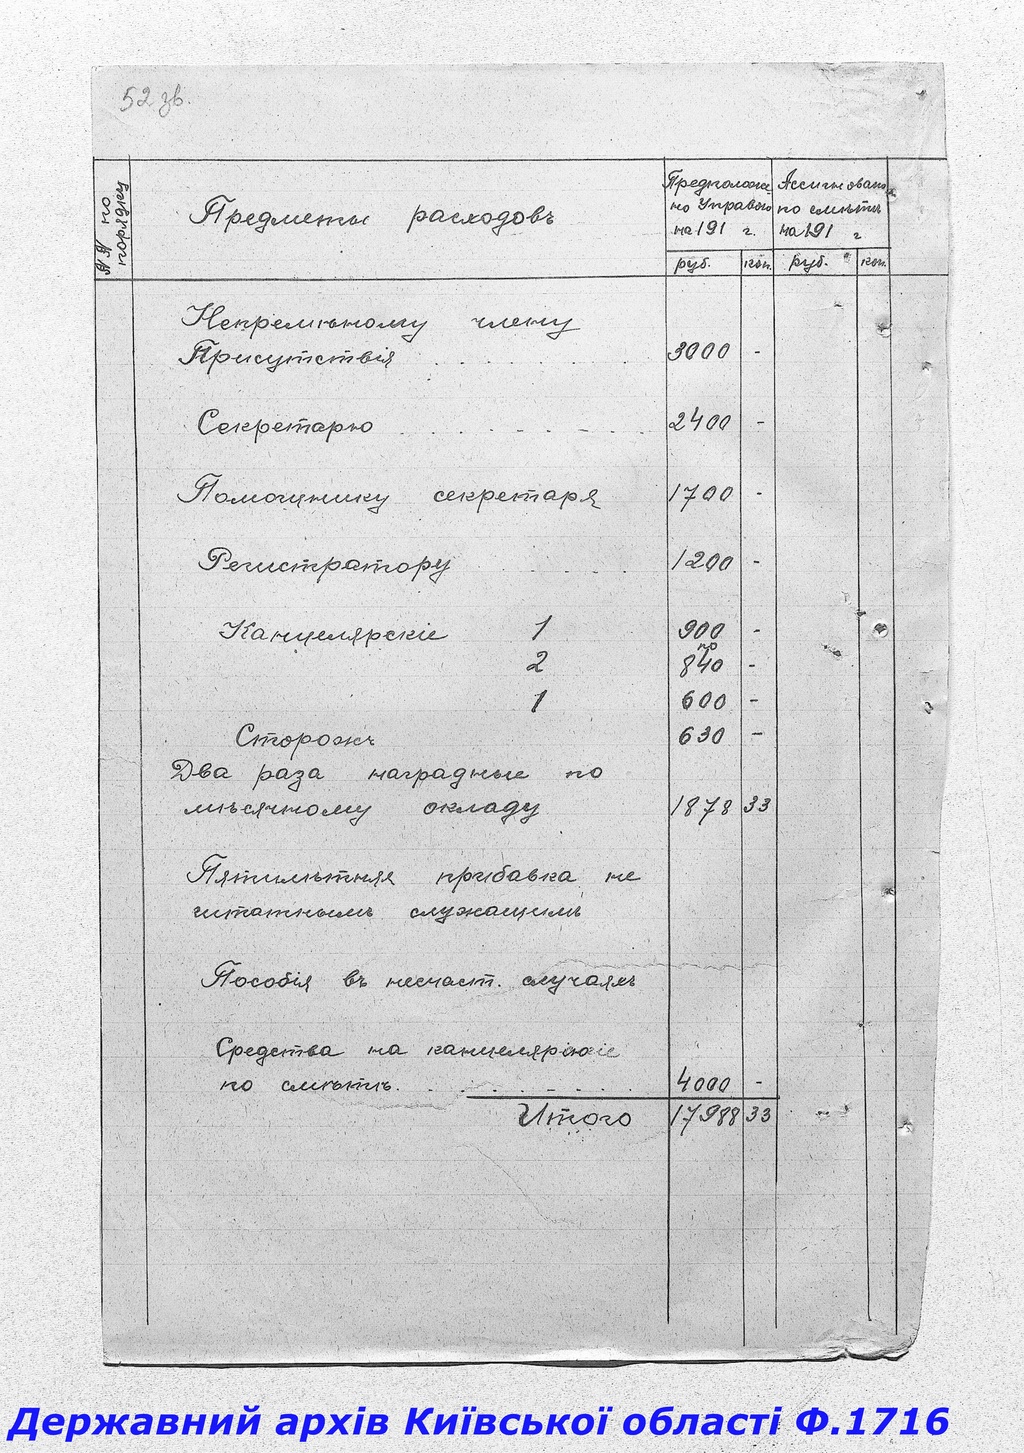 52 зв.
№№ по порядку
Предметы расходовъ
Предположе-
но Управою
на 191 г.
Ассигновано
по смѣтѣ
на 191 г
руб. коп. руб. коп.
Непремѣному члену
Присутствія . . . . . . . 3000 -
Секретарю . . . . . . . . 2400 -
Помощнику секретаря 1700 -
Регистратору . . . . 1200 -
Канцелярскіе 1 900 -
по
2 840 -
1 600 -
Сторожъ 630 -
Два раза наградные по
мѣсячному окладу 1878 33
Пятилѣтняя прибавка не
штатнымъ служащимъ
Пособія въ несчаст. случаяхъ
Средства на канцелярскіе
по смѣтѣ. . . . . . . . 4000 -
Итого 17988 33
Державний архів Київської області Ф.1716